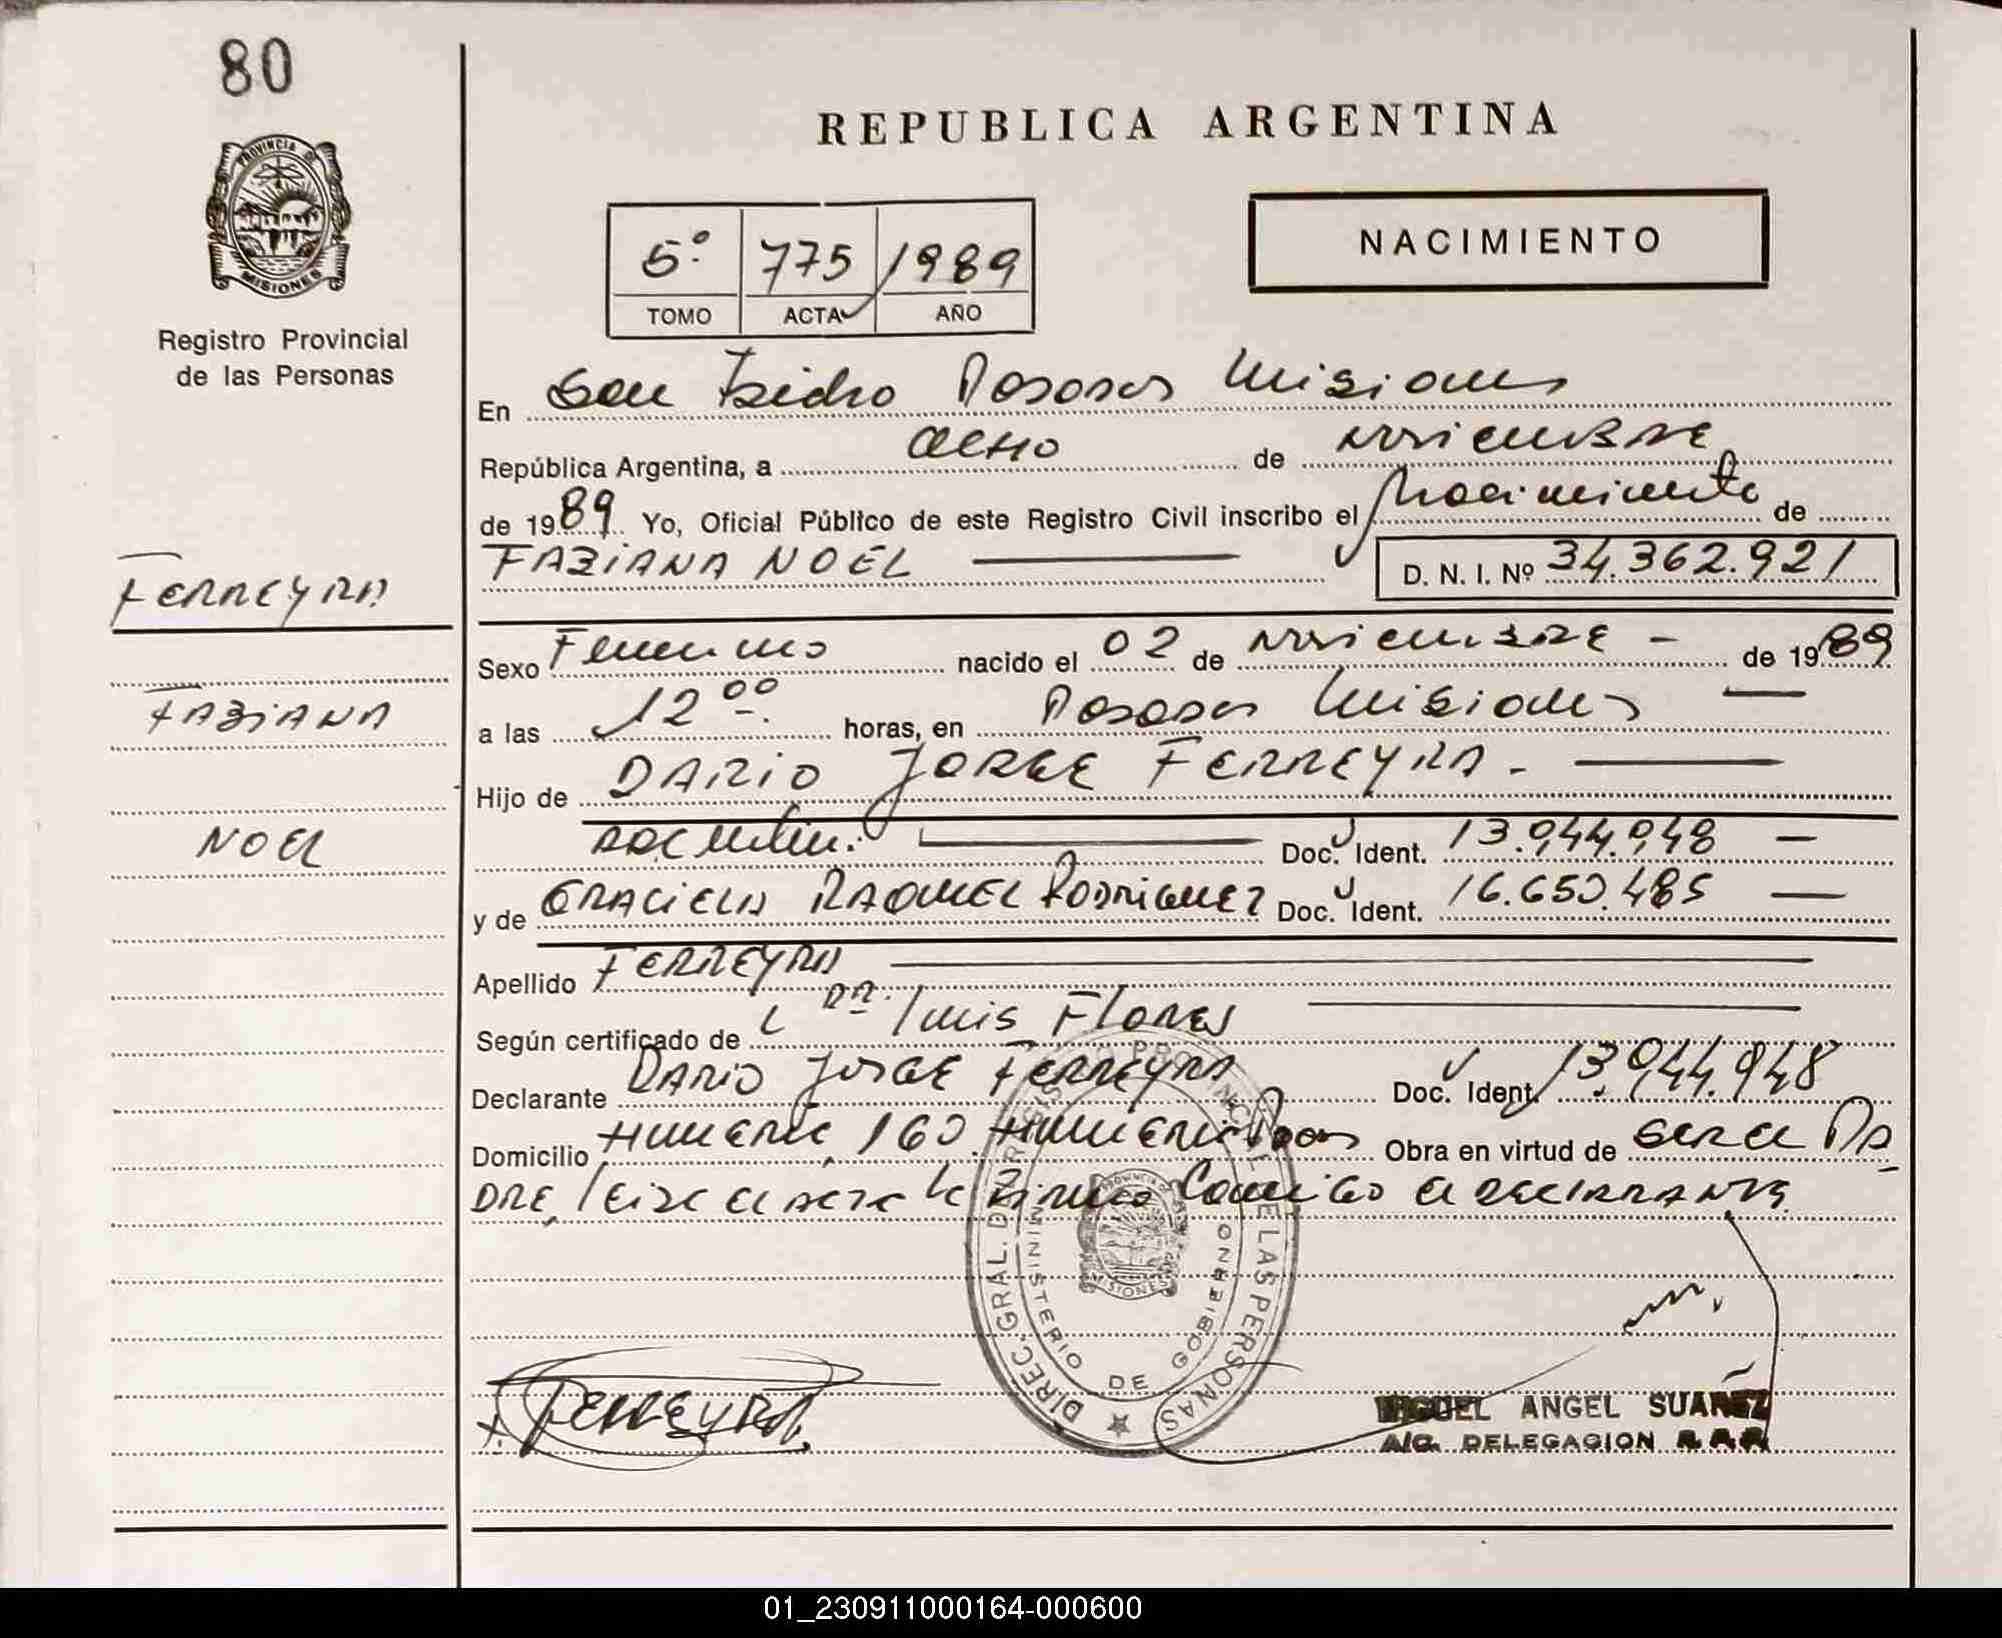 80
REPUBLICA ARGENTINA
PROVINCIA DE
MISIONES
5º 775 1989
TOMO ACTA AÑO
NACIMIENTO
Registro Provincial
de las Personas
En San Isidro Posadas Misiones
República Argentina, a ocho de noviembre
de 1989 Yo, Oficial Público de este Registro Civil inscribo el Nacimiento de
FABIANA NOEL D. N. I. Nº 34.362.921
FERREYRA
FABIANA
NOEL
Sexo Femenino nacido el 02 de noviembre de 1989
a las 12 00 horas, en Posadas Misiones
Hijo de DARIO JORGE FERREYRA
Argentin. Doc. Ident. 13.944.948
y de GRACIELA RAQUEL RODRIGUEZ Doc. Ident. 16.650.485
Apellido FERREYRA
Según certificado de Dr. Luis Flores
Declarante DARIO JORGE FERREYRA Doc. Ident. 13.944.948
Domicilio 160 Obra en virtud de ser el PA
DRE, leida el acta la firma conmigo el declarante
DIREC. GRAL. DEL REGISTRO PROVINCIAL DE LAS PERSONAS
MINISTERIO DE GOBIERNO
FERREYRA
MIGUEL ANGEL SUAREZ
A/C. DELEGACION
01_230911000164-000600